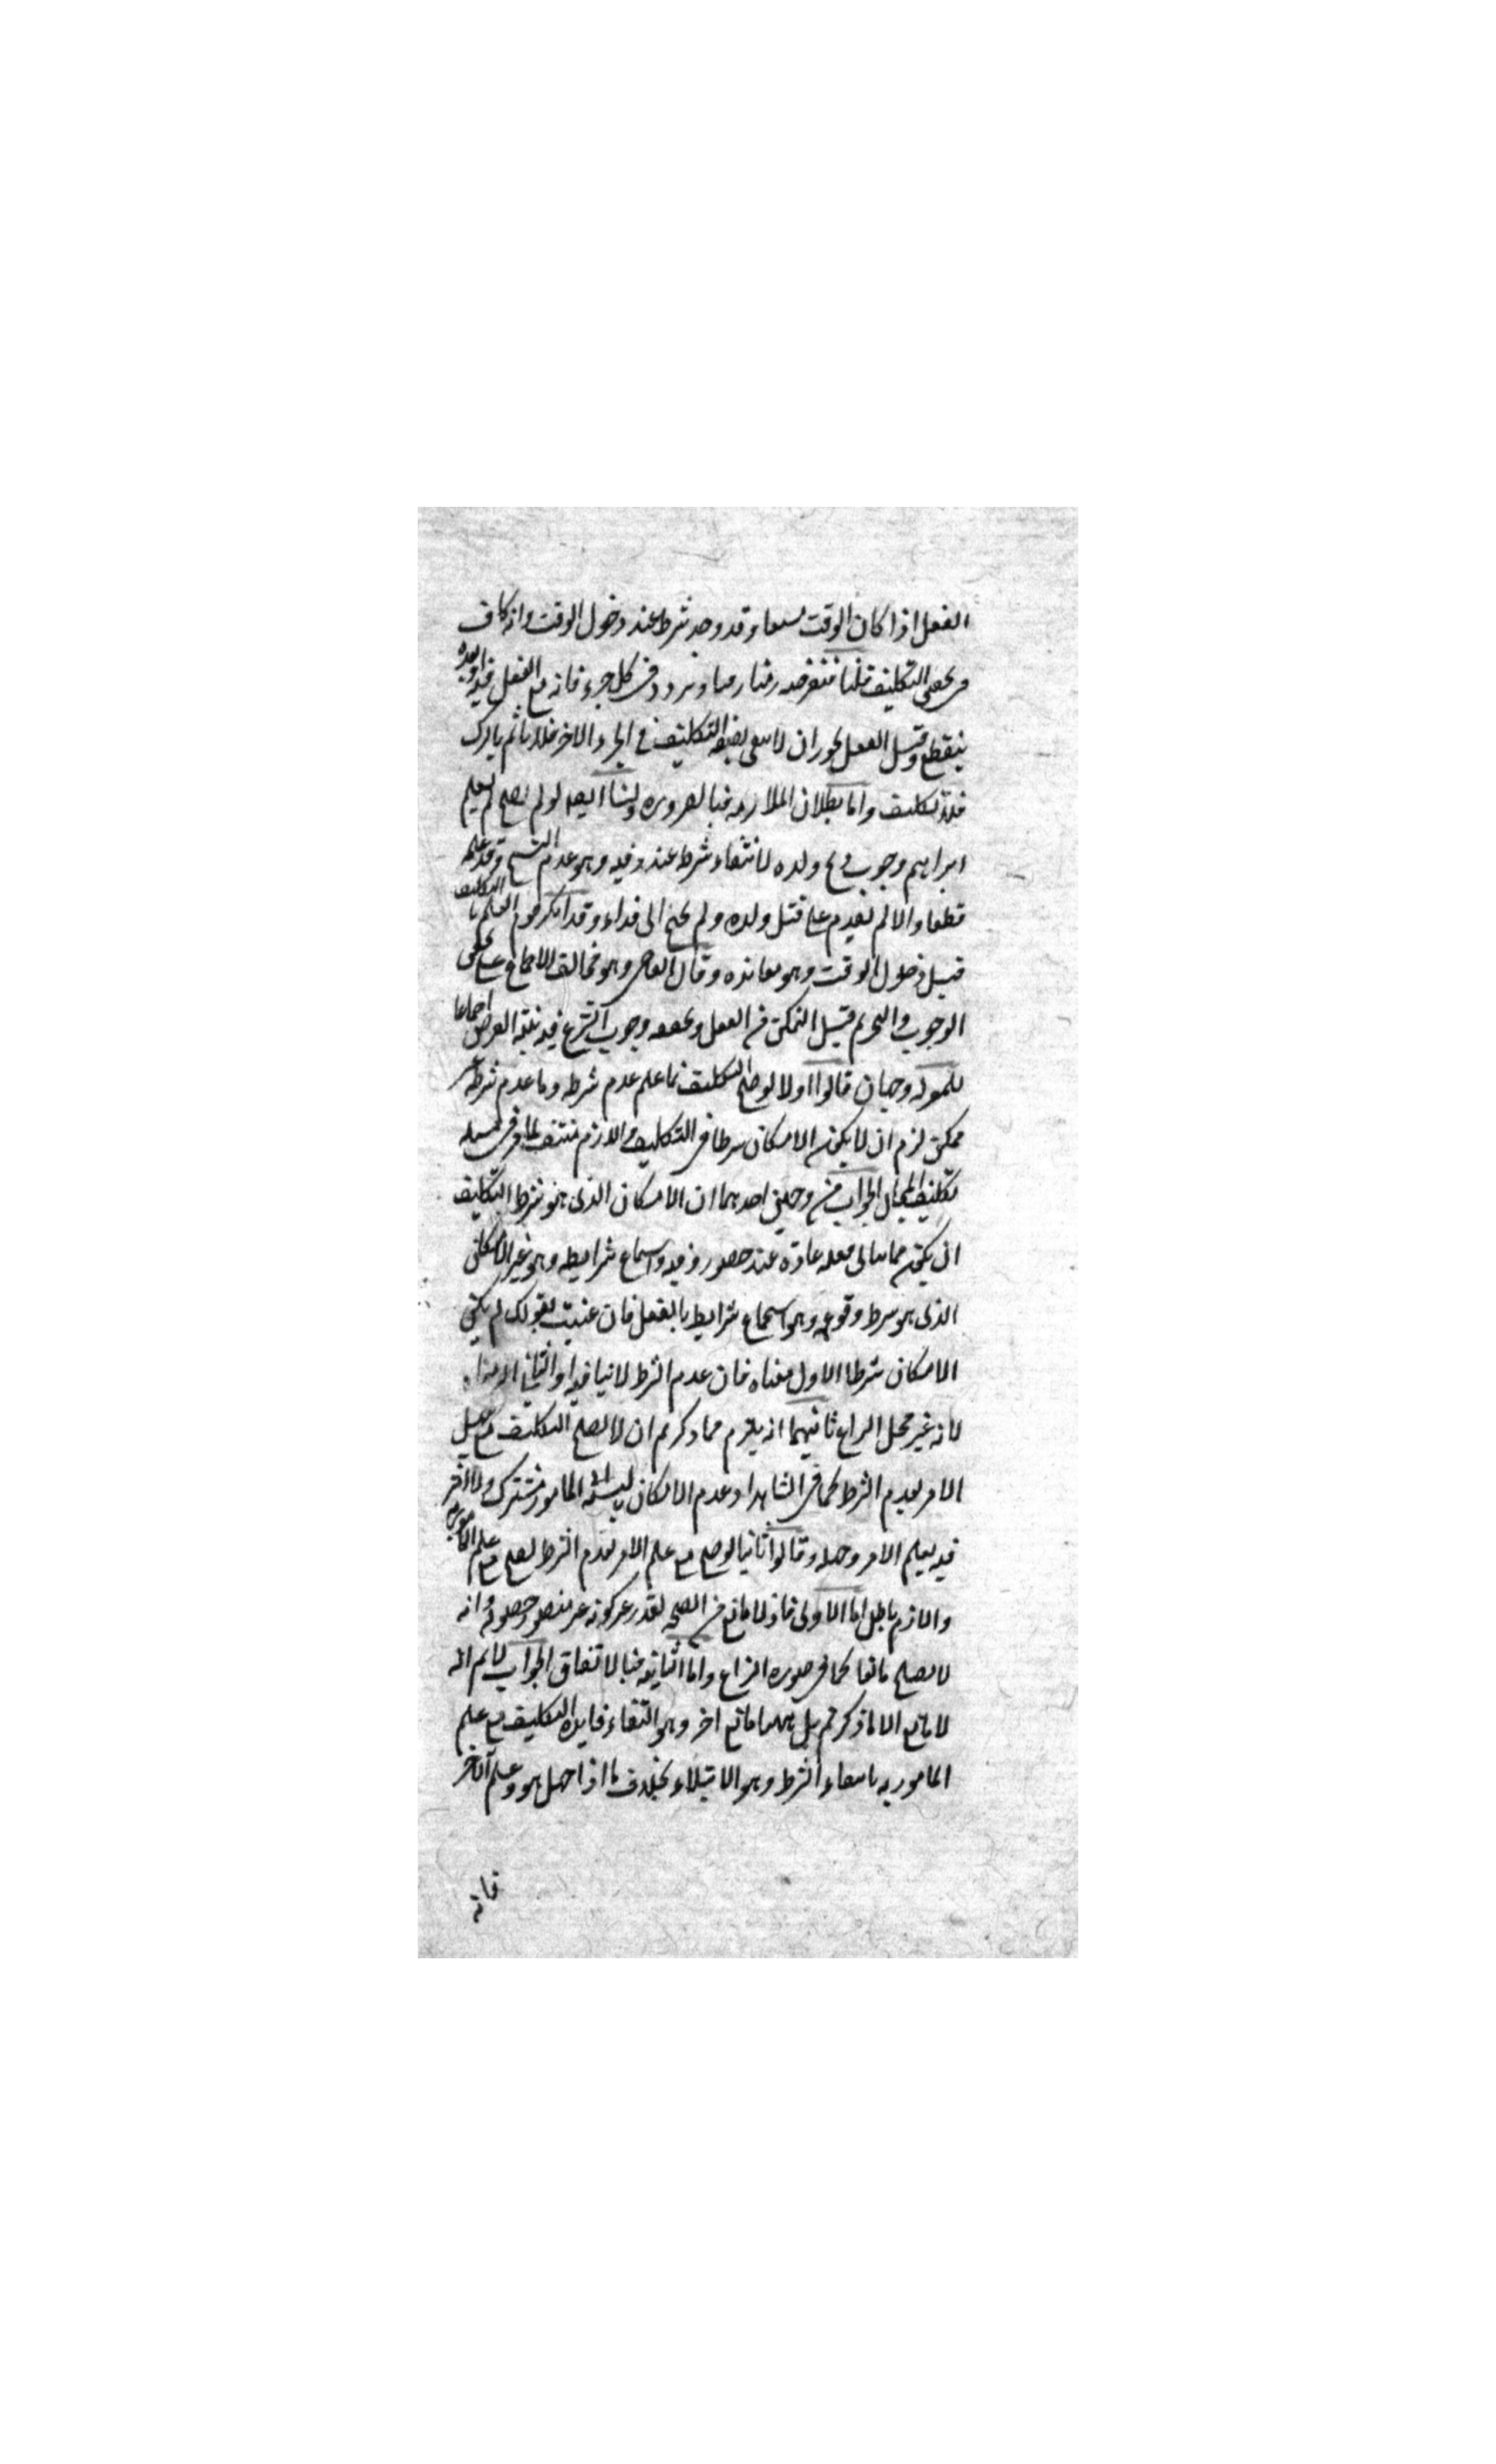 الفعل اذا كان الوقت متسعا وقد وجد شرطه عند دخول الوقت وانه كاف
فى تحقق التكليف قلنا نفرضه زمنا زمنا ونردد فى كل جزء فانه مع الفعل فيه وبعده
ينقطع وقبل الفعل يجوز ان لا يبقى بصفة التكليف فى الجزء الاخر فلا ياثم بالترك
فلا تكليف واما بطلان الملازمة فبالضرورة ولنا ايضا لو لم يصح لم يعلم
ابراهيم وجوب ذبح ولده لانتفاء شرطه عند وقته وهو عدم النسخ وقد علمه
قطعا والا لم يقدم على قتل ولده ولم يحتج الى فداء وقد انكر قوم العلم بالتكليف
قبل دخول الوقت وهو معاندة وقال القاضى وهو مخالف للاجماع على تحقق
الوجوب والتحريم قبل التمكن من الفعل وتحققه وجوب الشرع فيه بنية الفرض اجماعا
للمعتزلة وجهان قالوا اولا لو صح التكليف بما علم عدم شرطه وما عدم شرطه غير
ممكن لزم ان لا يكون الامكان شرطا فى التكليف واللازم منتف لما مر فى مسئلة
تكليف المحال الجواب من وجهين احدهما ان الامكان الذى هو شرط التكليف
ان يكون مما يتاتى فعله عادة عند حضور وقته واستجماع شرايطه وهو غير الامكان
الذى هو شرط وقوعه وهو استجماع شرايطه بالفعل فان عنيت بقولك لم يكن
الامكان شرطا الاول منعناه فان عدم الشرط لا ينافيه او الثانى التزمناه
لانه غير محل النزاع ثانيهما انه يلزم مما ذكرتم ان لا يصح التكليف مع جهل
الامر بعدم الشرط كما فى الشاهد اذ عدم الامكان بالنسبة الى المامور مشترك ولا اثر
فيه لعلم الامر وجهله وقالوا ثانيا لو صح مع علم الامر بعدم الشرط لصح مع علم المامور به
واللازم باطل اما الاولى فاذ لا مانع من الصحة يقدر غير كونه غير متصور حصوله وانه
لا يصلح مانعا كما فى صورة النزاع واما الثانية فبالاتفاق الجواب لا نم انه
لا مانع الا ما ذكرتم بل ههنا مانع اخر وهو انتفاء فايدة التكليف مع علم
المامور به بانتفاء الشرط وهو الابتلاء بخلاف ما اذا جهل هو وعلم الامر
فانه